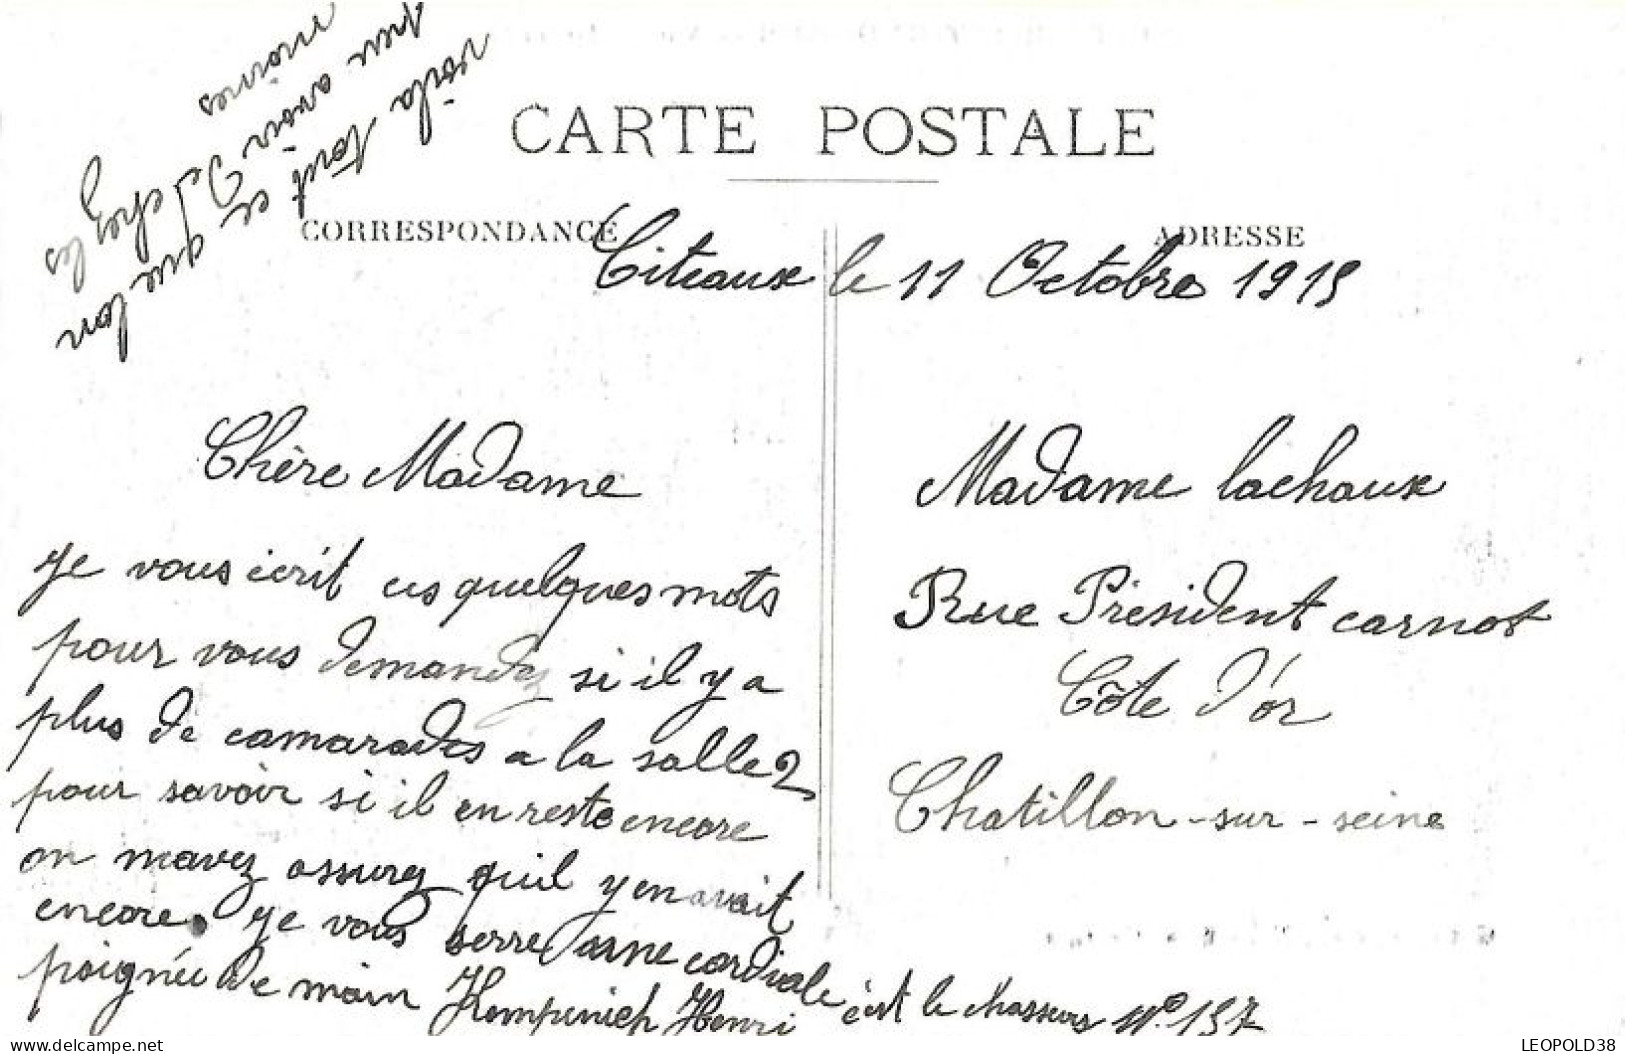 voila tout ce que lon
peu avoir d chez les
moines
CARTE POSTALE
CORRESPONDANCE
ADRESSE
Citeaux le 11 Octobre 1915
Chère Madame
Je vous écrit ces quelques mots
pour vous demandez si il y a
plus de camarades a la salle 2
pour savoir si il en reste encore
on mavez assurez quil y en avait
encore. Je vous serre une cordiale
poignée de main Henri c'est le chasseurs No 157
Madame lachaux
Rue Président carnot
Côte d'or
Chatillon-sur-seine
LEOPOLD38
delcampe.net